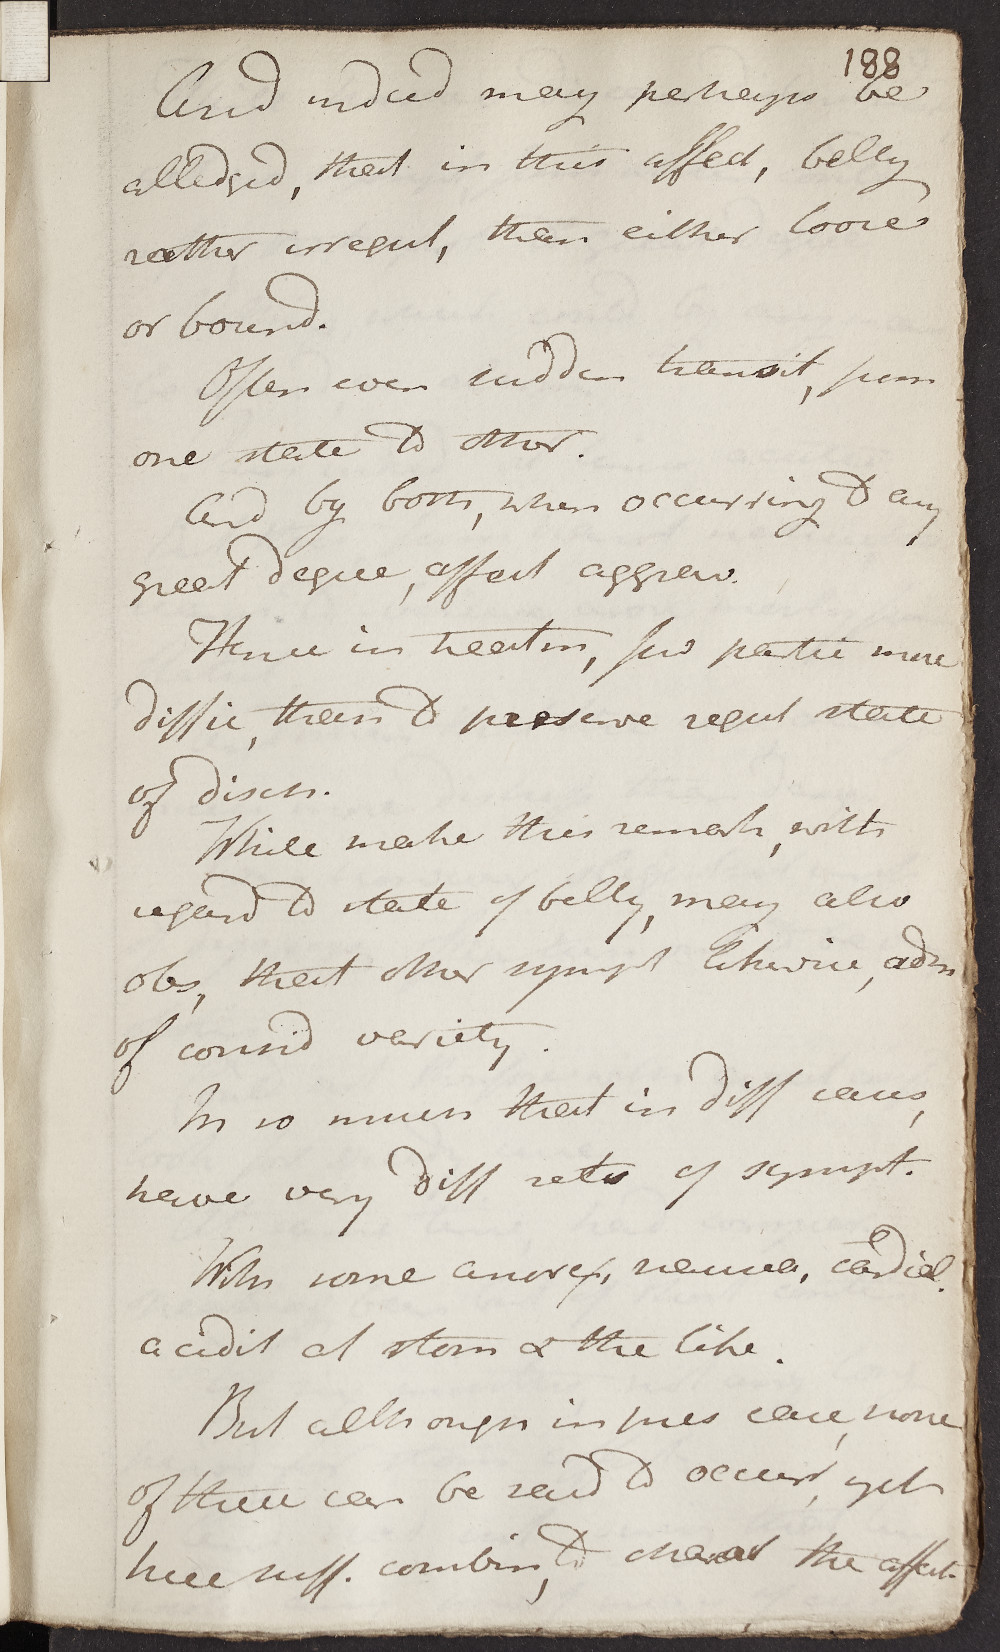 188
And indeed may perhaps be
alledged, that in this affect, belly
rather irregul, than either loose
or bound.
Often even sudden transit, from
one state to other.
And by both, when occurring to any
great degree, affect aggrav.
Hence in treatm, few partic more
diffic, than to preserve regul state
of disch.
While make this remark, with
regard to state of belly, may also
obs, that other sympt likewise, adm
of consid variety.
In so much that in diff cases,
have very diff sets of sympt.
With some anorex, nausea, cardial.
acidit at stom & the like.
But although in pres case, none
of these can be said to occur, yet
here suff. combin, to charact the affect.